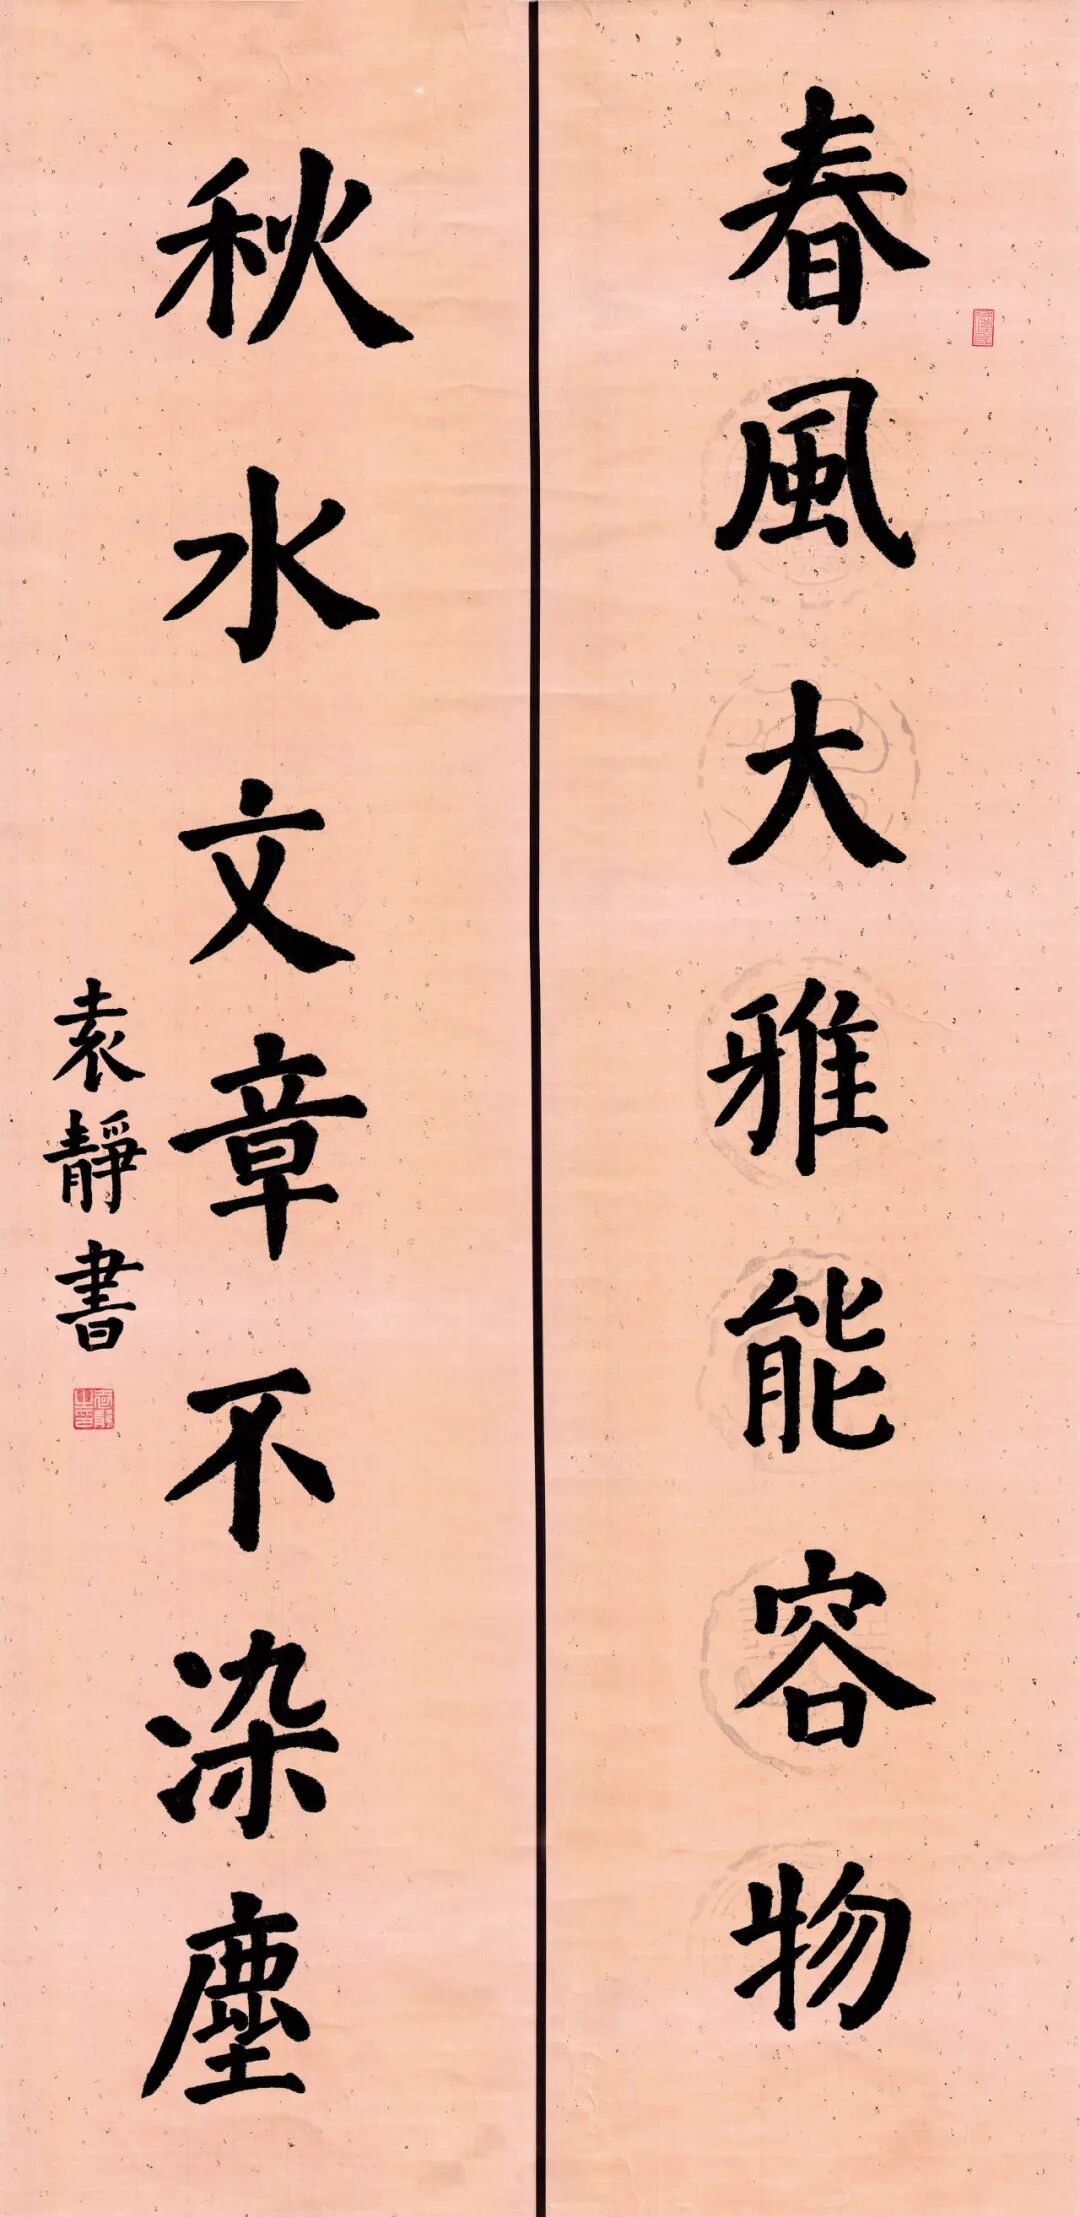 春風大雅能容物
秋水文章不染塵
袁靜書